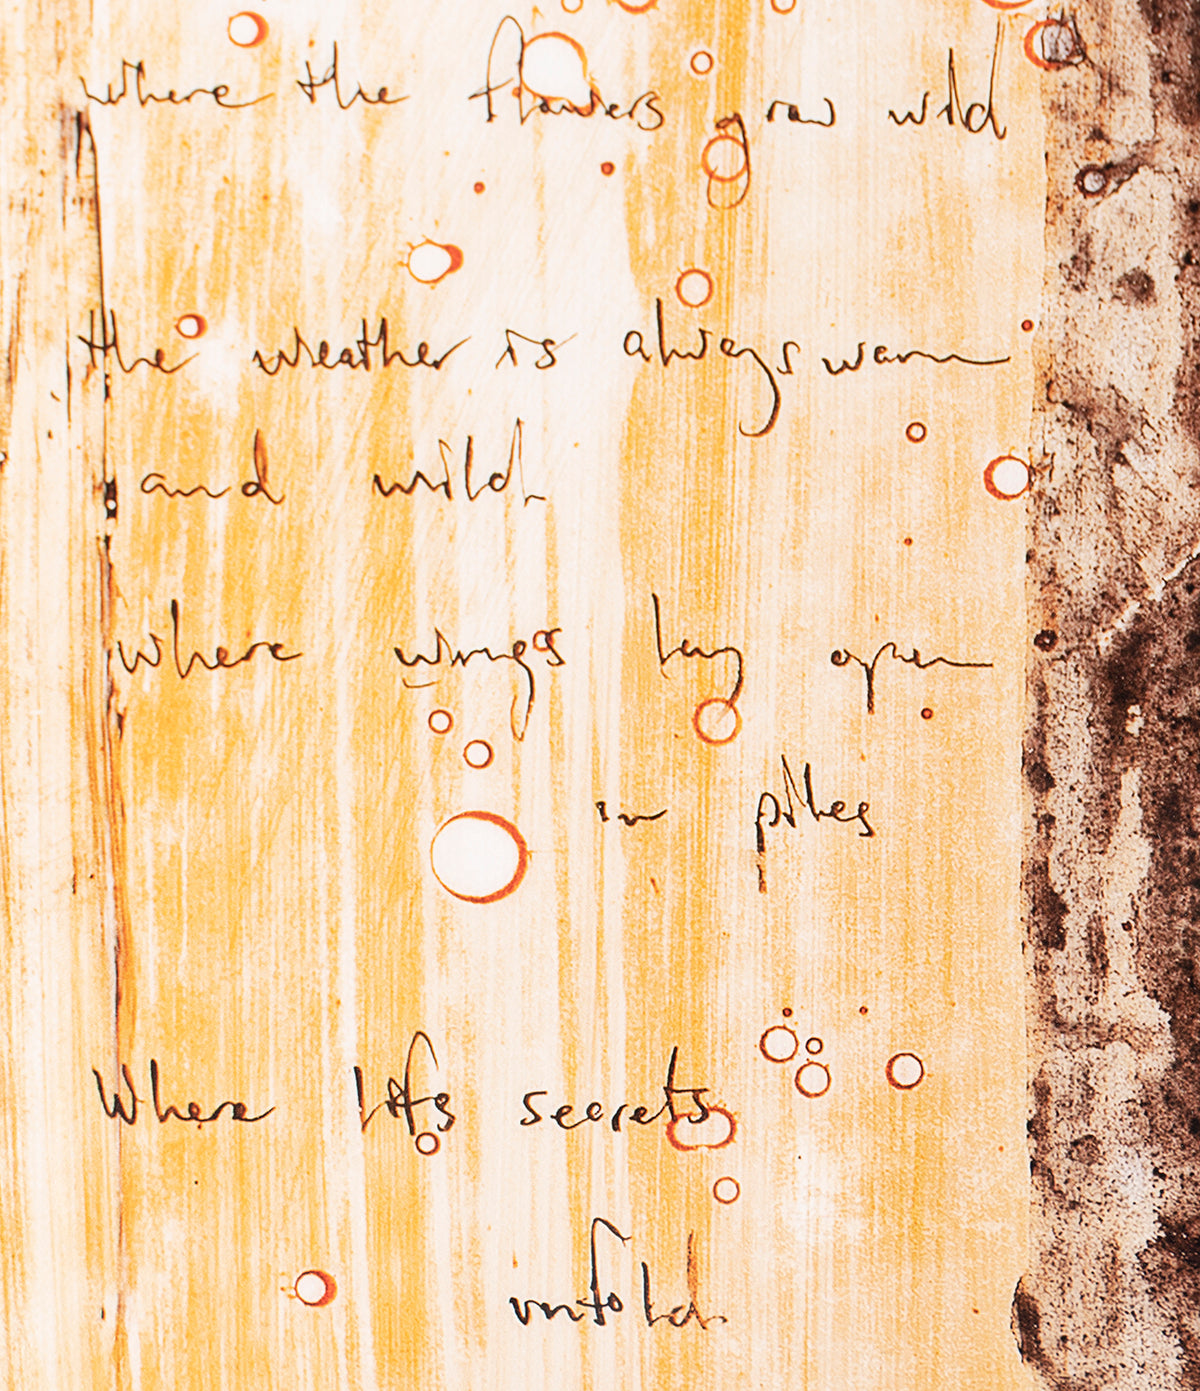 where the flowers grow wild
the weather is always warm
and wild
where wings lay open
in piles
Where lifes secrets
unfold